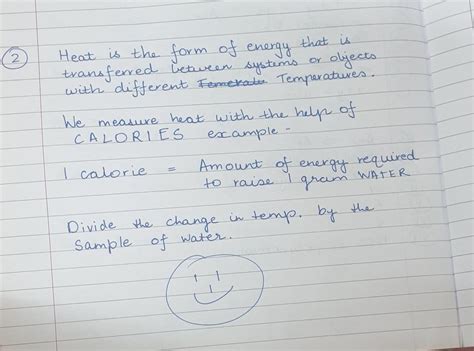 2
Heat is the form of energy that is
transferred between systems or objects
with different Temperatures.
We measure heat with the help of
CALORIES example -
1 calorie = Amount of energy required
to raise 1 gram WATER
Divide the change in temp. by the
Sample of water.